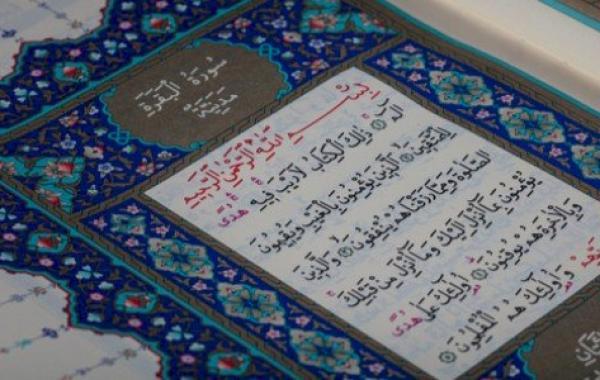 سُورَةُ الْبَقَرَةِ
مَدَنِيَّةٌ
بِسْمِ اللَّهِ الرَّحْمٰنِ الرَّحِيمِ
الٓمٓ ۝ ذٰلِكَ الْكِتَابُ لَا رَيْبَ فِيهِ هُدًى
لِلْمُتَّقِينَ ۝ الَّذِينَ يُؤْمِنُونَ بِالْغَيْبِ وَيُقِيمُونَ
الصَّلٰوةَ وَمِمَّا رَزَقْنَاهُمْ يُنْفِقُونَ ۝ وَالَّذِينَ
يُؤْمِنُونَ بِمَٓا اُنْزِلَ اِلَيْكَ وَمَٓا اُنْزِلَ مِنْ قَبْلِكَ
وَبِالْاٰخِرَةِ هُمْ يُوقِنُونَ ۝ اُولٰٓئِكَ عَلٰى هُدًى
وَاُولٰٓئِكَ هُمُ الْمُفْلِحُونَ ۝